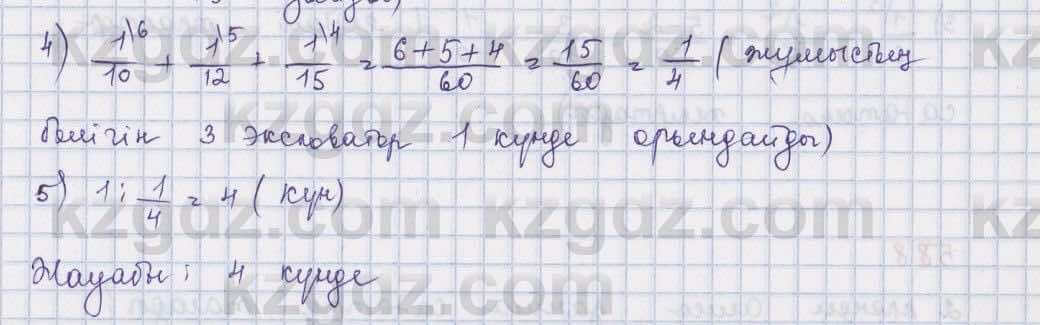 4) 1\6/10 + 1\5/12 + 1\4/15 = 6+5+4/60 = 15/60 = 1/4 ( жұмыстың
бөлігін 3 экскаватор 1 күнде орындайды)
5) 1 : 1/4 = 4 ( күн)
Жауабы: 4 күнде
kzgdz.com